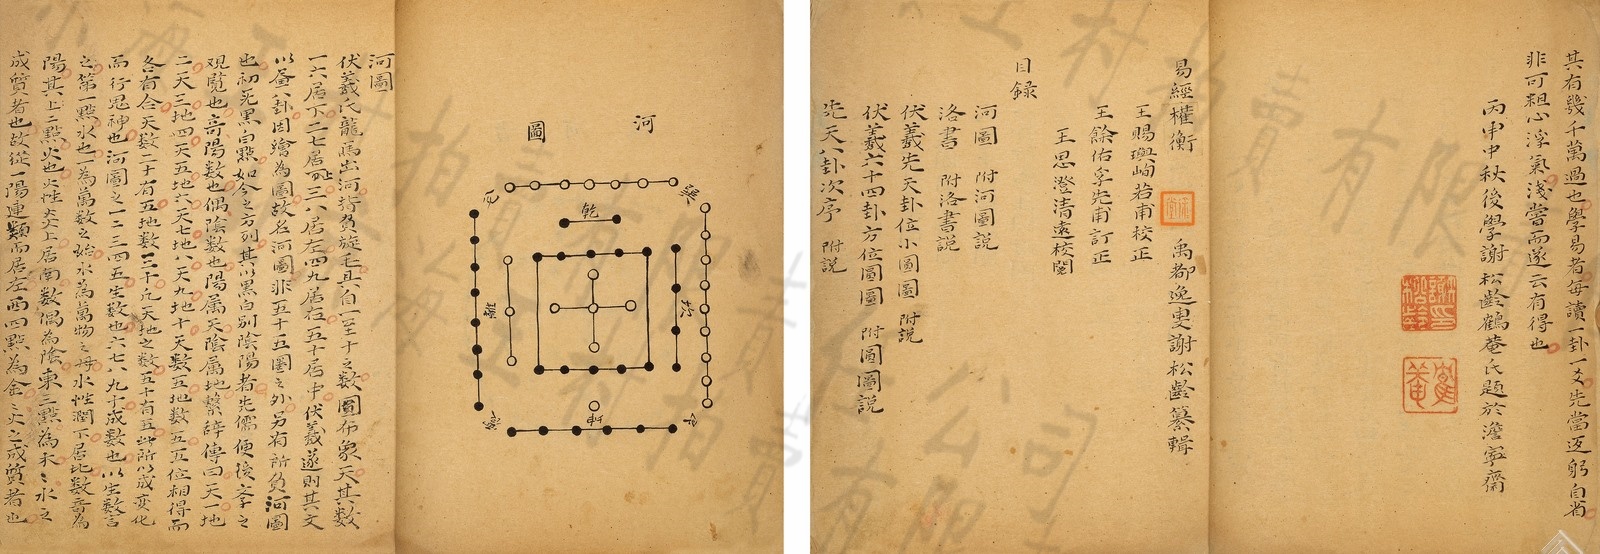 其有幾千萬過也學易者每讀一卦一爻先當返躬自省
非可粗心浮氣淺嘗而遂云有得也
丙申中秋後學謝松齡鶴菴氏題於澹寧齋
易經權衡
禹都逸叟謝松齡纂輯
王賜璵峋若甫校正
王餘佑孚先甫訂正
王思澄清遠校閱
目錄
河圖 附河圖說
洛書 附洛書說
伏羲先天卦位小圓圖 附說
伏羲六十四卦方位圓圖 附圖說
先天八卦次序 附說
河圖
巽
兌
乾
坎
離
坤
艮
河圖
伏羲氏龍馬出河背負旋毛具自一至十之數圖布象天其數
一六居下二七居上三八居左四九居右五十居中伏羲遂則其文
以畫八卦因繪為圖故名河圖非五十五圈之外另有所負河圖
也初无黑白點如今之方列其以黑白別陰陽者先儒便後學之
觀覽也奇陽數也偶陰數也陽属天陰属地繫辭傳曰天一地
二天三地四天五地六天七地八天九地十天數五地數五五位相得而
各有合天數二十有五地數三十凡天地之數五十有五此所以成變化
而行鬼神也河圖之一二三四五生數也六七八九十成數也以生數言
之第一點水也一為萬數之始水為萬物之母水性潤下居北數奇為
陽其上二點火也火性炎上居南數偶為陰東三點為木木水之
成質者也故從一陽連類而居左西四點為金金火之成質者也